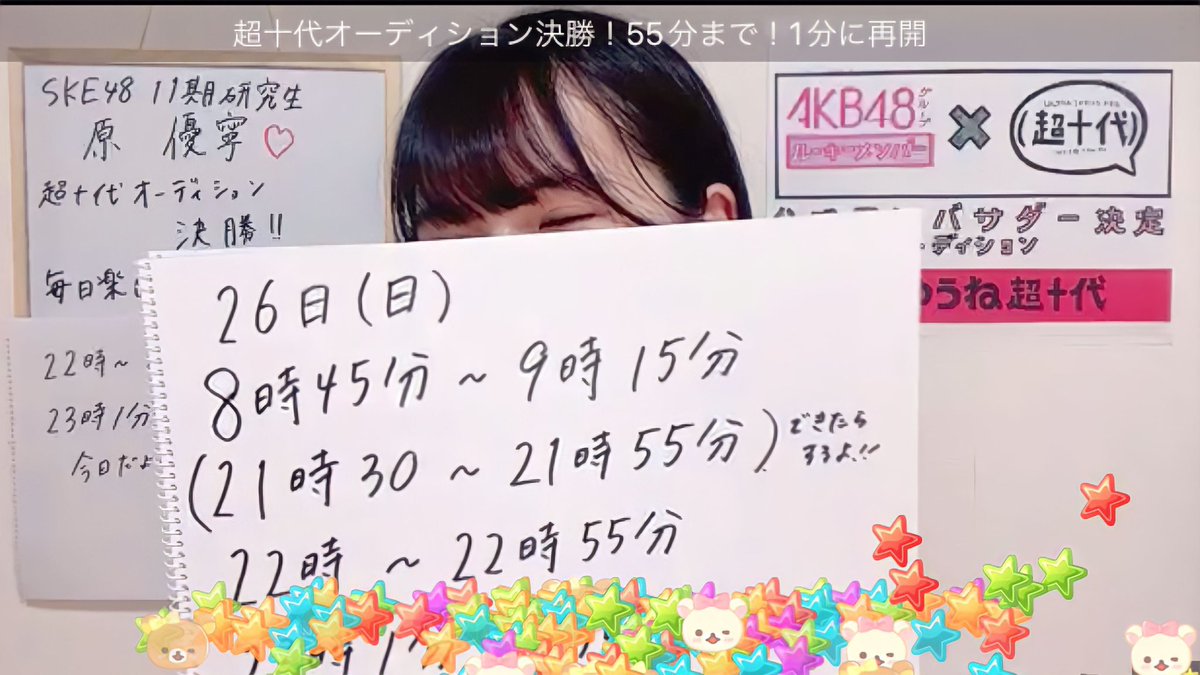 超十代オーディション決勝！55分まで！1分に再開
SKE48 11期研究生
原 優寧♡
超十代オーディション
決勝!!
毎日楽
22時～
23時1分
今日だよ
AKB48グループ
ルーキーメンバー
×
(超十代)
バサダー決定
ーディション
うね超十代
26日(日)
8時45分～9時15分
(21時30～21時55分)できたら
するよ!!
22時～22時55分